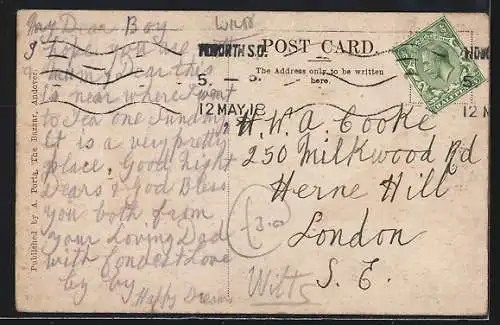 My Dear Boy
I hope you are
Dear this
is near where I went
to Tea one Sunday
It is a very pretty
place. Good night
Dears & God Bless
you both from
your Loving Dad
with Fondest Love
by by
Happy Dreams
Published by A. Porta, The Bazaar, Andover.
POST CARD.
The Address only to be written
here.
5
12 MAY 18
5
12 M
H. W. A. Cooke
250 Milkwood Rd
Herne Hill
London
S. E.
3.00
Wilts